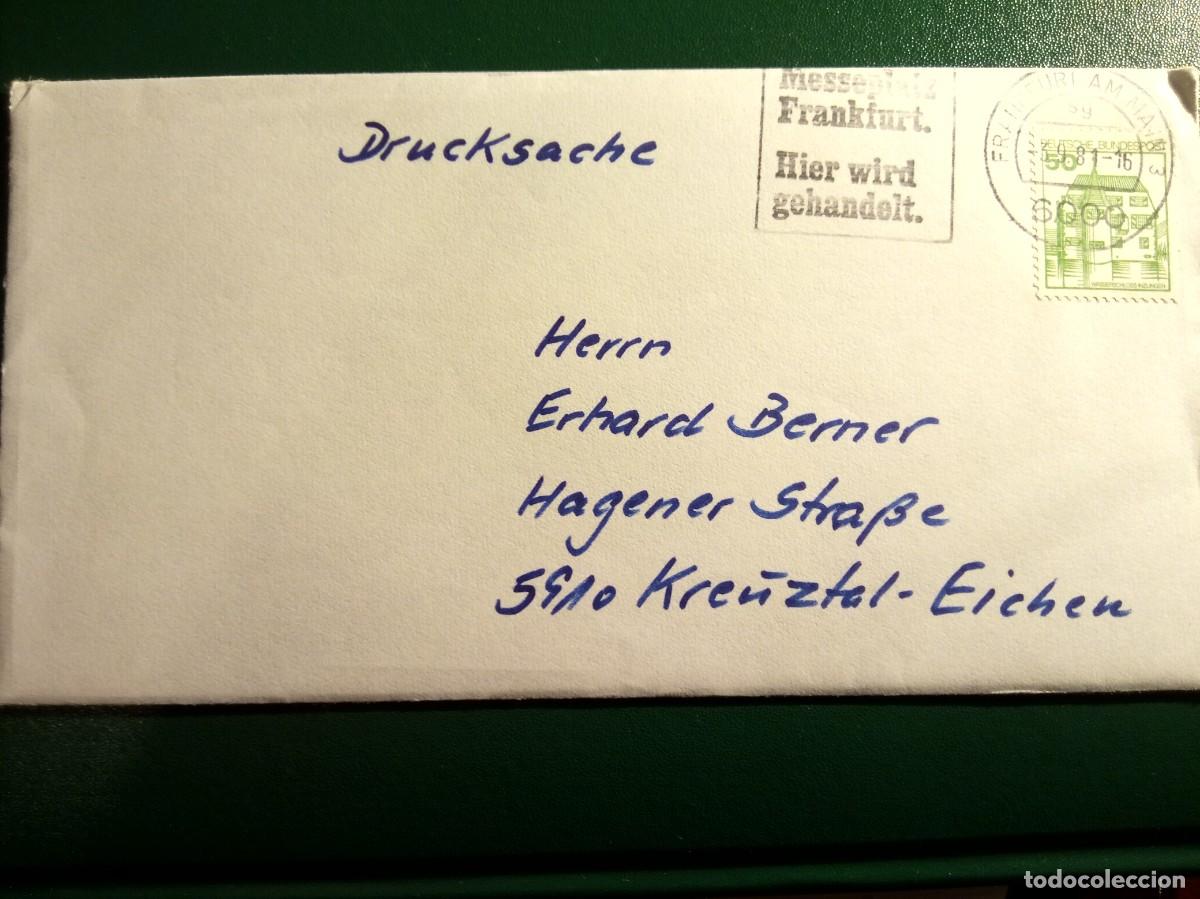 Drucksache
Messeplatz
Frankfurt.
Hier wird
gehandelt.
FRANKFURT AM MAIN 3
sg
81-16
6000
DEUTSCHE BUNDESPOST
50
WASSERSCHLOSS INZLINGEN
Herrn
Erhard Berner
Hagener Straße
5910 Kreuztal-Eichen
todocoleccion